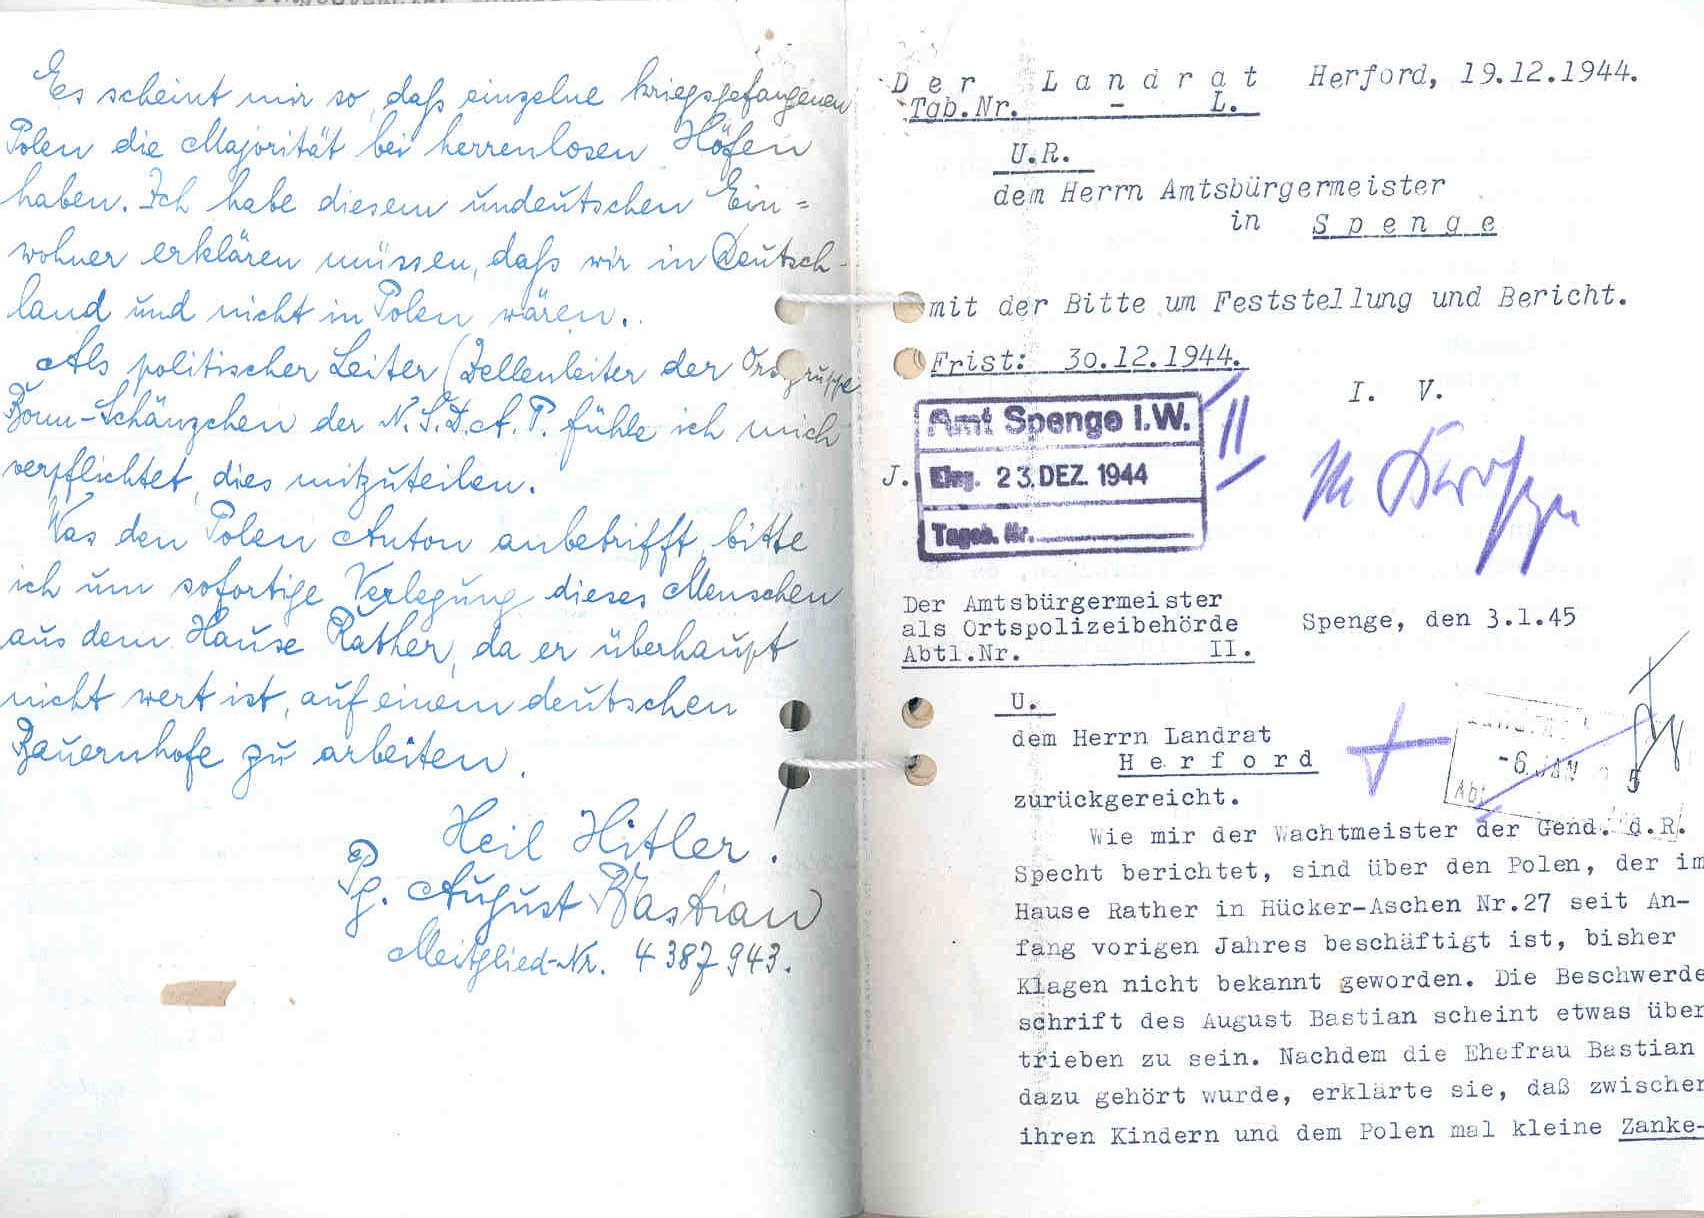 Es scheint mir so, daß einzelne kriegsgefangenen
Polen die Majorität bei herrenlosen Höfen
haben. Ich habe diesem undeutschen Ein=
wohner erklären müssen, daß wir in Deutsch-
land und nicht in Polen wären.
Als politischer Leiter (Zellenleiter der Ortsgruppe
Bonn-Schänzchen der N.S.D.A.P. fühle ich mich
verpflichtet, dies mitzuteilen.
Was den Polen Anton anbetrifft, bitte
ich um sofortige Verlegung dieses Menschen
aus dem Hause Rather, da er überhaupt
nicht wert ist, auf einem deutschen
Bauernhofe zu arbeiten.
Heil Hitler!
Pg. August Bastian
Mitglied-Nr. 4387943.
Der Landrat Herford, 19.12.1944.
Tgb.Nr. - L.
U.R.
dem Herrn Amtsbürgermeister
in Spenge
mit der Bitte um Feststellung und Bericht.
Frist: 30.12.1944.
I. V.
Amt Spenge i.W.
J. Eing. 23. DEZ. 1944
Tageb. Nr.
II
Der Amtsbürgermeister
als Ortspolizeibehörde Spenge, den 3.1.45
Abtl.Nr. II.
U.
dem Herrn Landrat
Herford
-6. JAN 5
Abt
zurückgereicht.
Wie mir der Wachtmeister der Gend. d.R.
Specht berichtet, sind über den Polen, der im
Hause Rather in Hücker-Aschen Nr.27 seit An-
fang vorigen Jahres beschäftigt ist, bisher
Klagen nicht bekannt geworden. Die Beschwerde
schrift des August Bastian scheint etwas über
trieben zu sein. Nachdem die Ehefrau Bastian
dazu gehört wurde, erklärte sie, daß zwischen
ihren Kindern und dem Polen mal kleine Zanke-